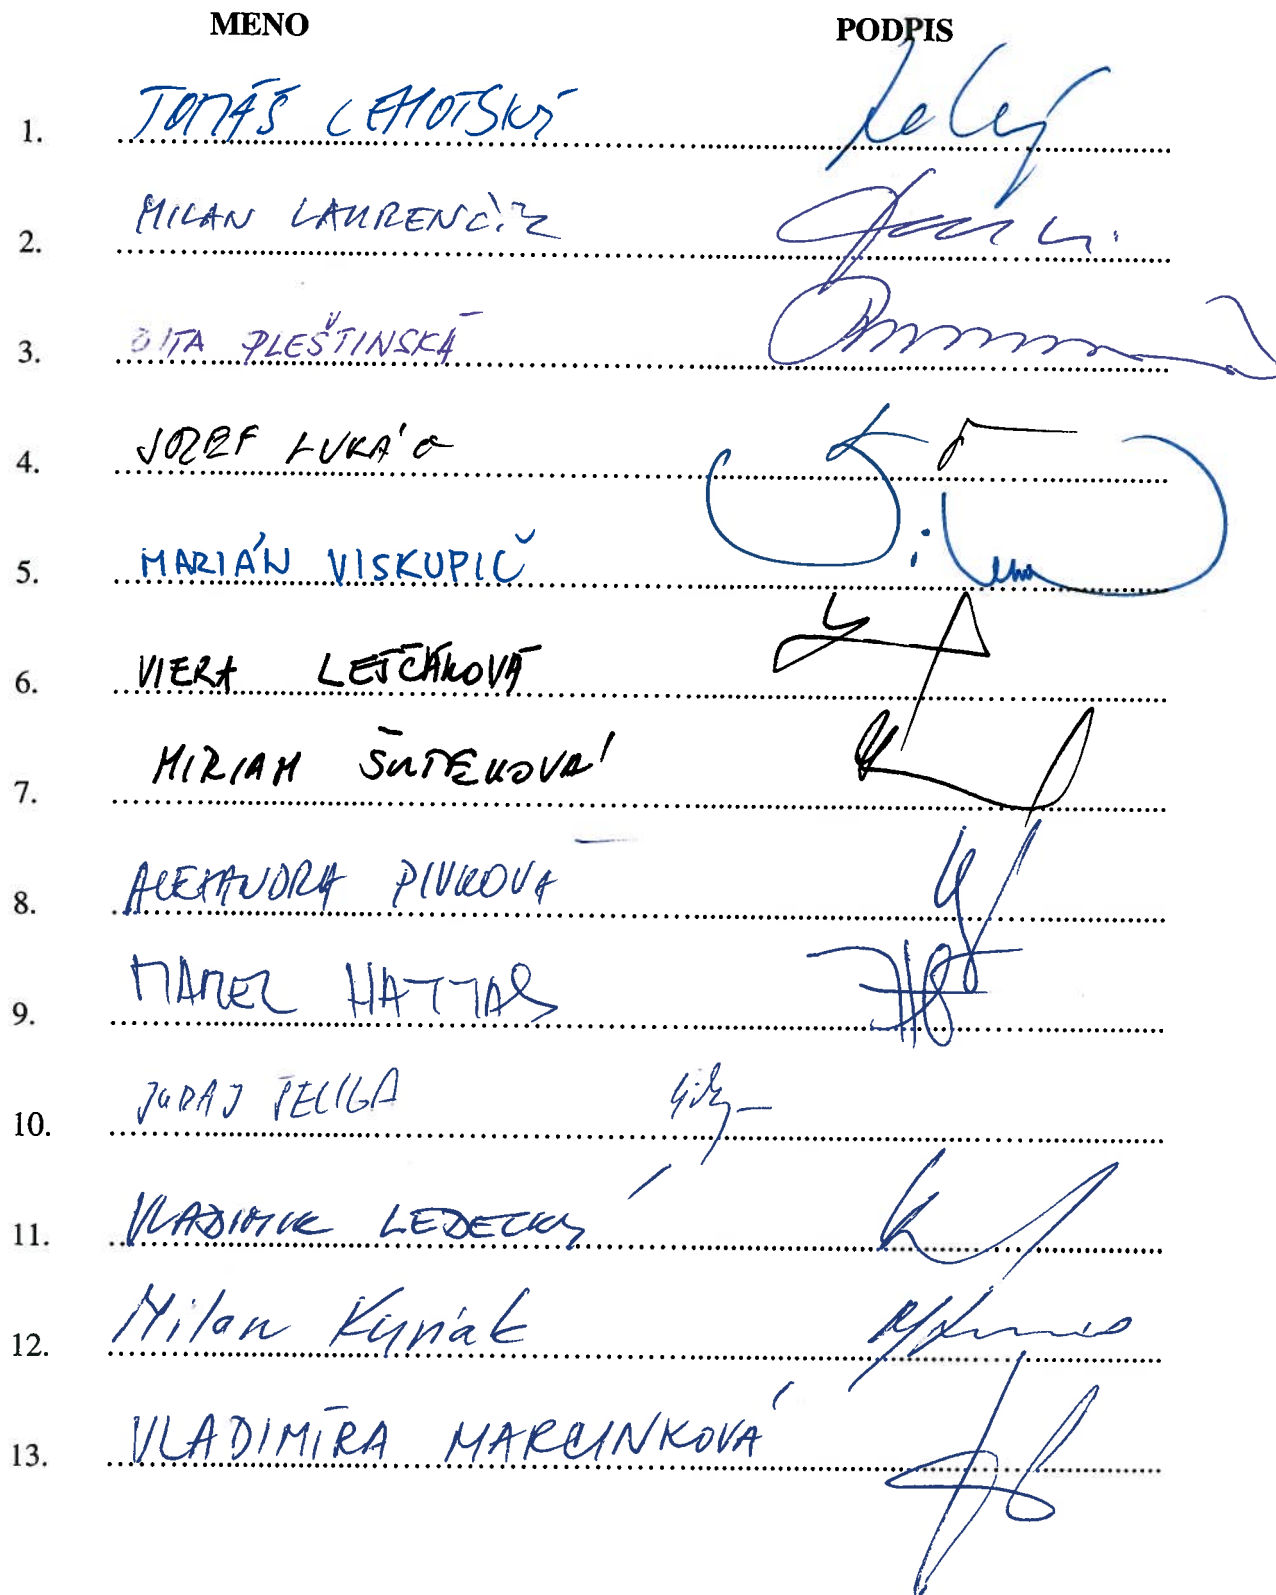 MENO PODPIS
1. TOMÁŠ LEHOTSKÝ
2. MILAN LAURENČÍK
3. PLEŠTINSKÁ
4. JOZEF LUKÁČ
5. MARIÁN VISKUPIČ
6. VIERA LEŠČÁKOVÁ
7. MIRIAM ŠUTEKOVÁ
8. ALEXANDRA PIVKOVÁ
9. MAREK HATTAS
10. JURAJ ŠELIGA
11. VLADIMÍR LEDECKÝ
12. Milan Kuriak
13. VLADIMÍRA MARCINKOVÁ